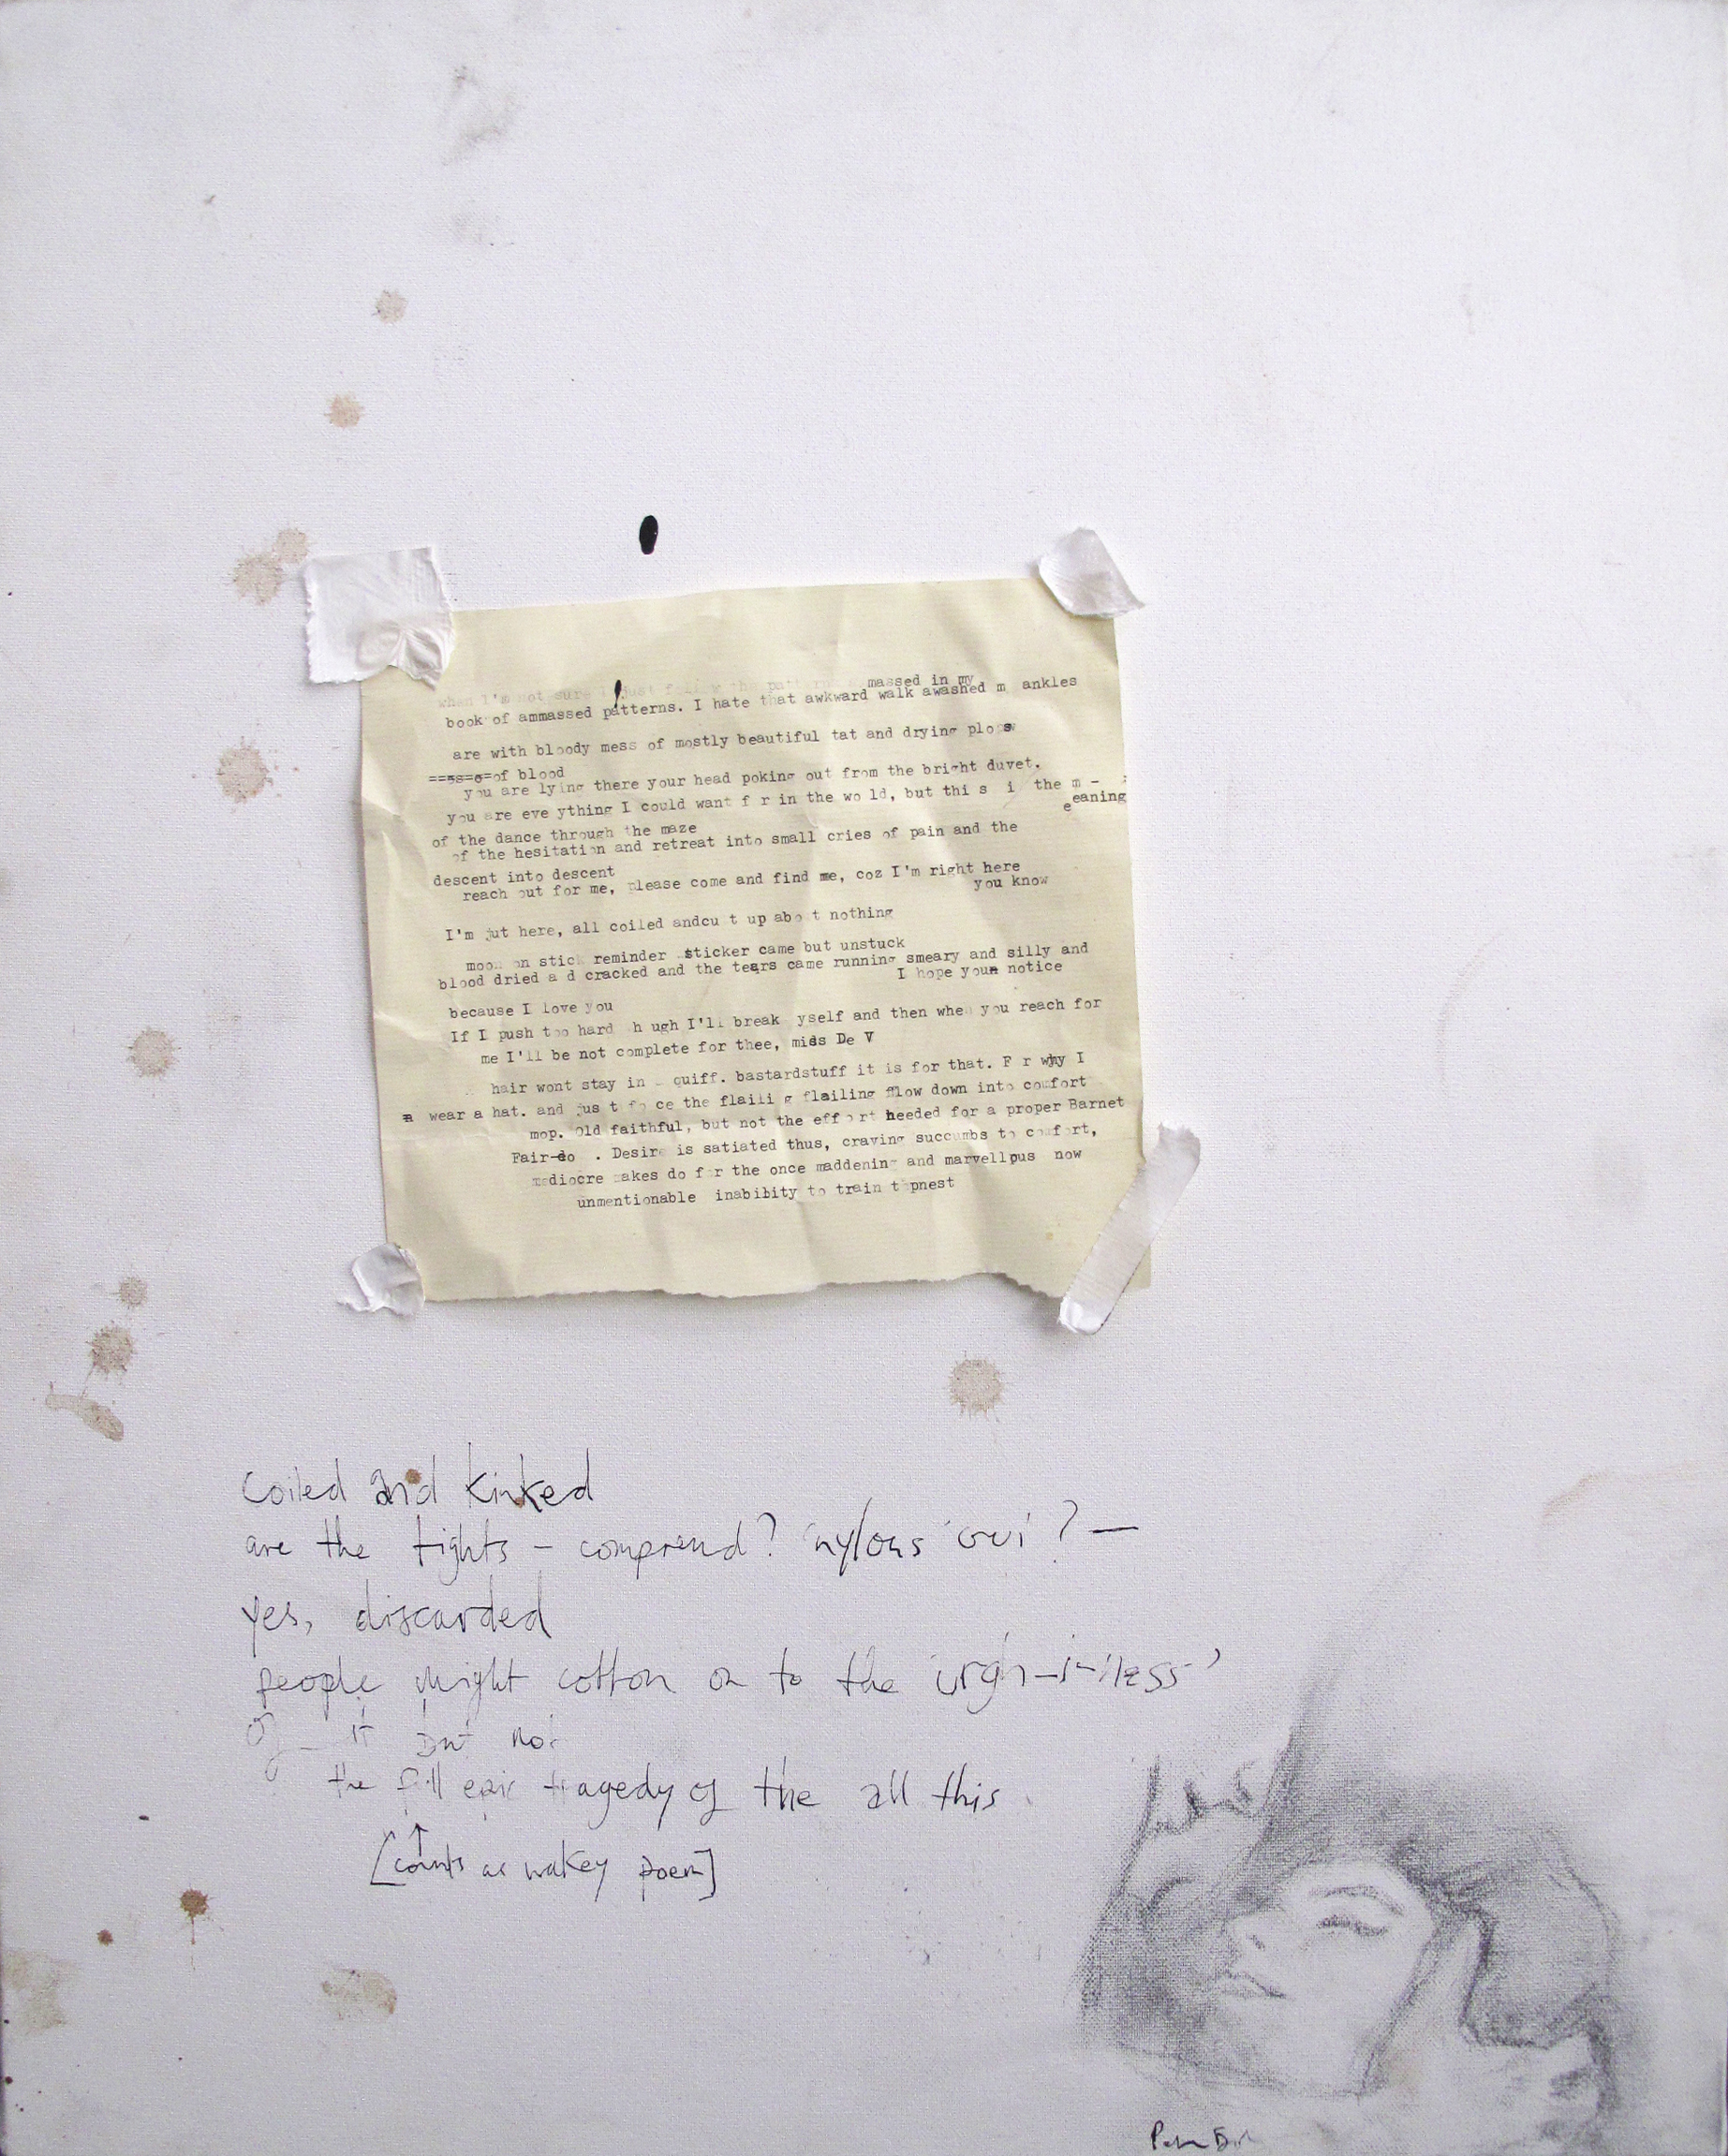 when I'm not sure I just follow the patterns massed in my
book of ammassed patterns. I hate that awkward walk awashed m ankles
are with bloody mess of mostly beautiful tat and drying plops
of blood
you are lying there your head poking out from the bright duvet.
you are eve ything I could want f r in the wo ld, but thi s i the m -
eeaning
of the dance through the maze
of the hesitation and retreat into small cries of pain and the
descent into descent
reach out for me, please come and find me, coz I'm right here
you know
I'm jut here, all coiled andcu t up abo t nothing
moon on stick reminder sticker came but unstuck
blood dried a d cracked and the tears came running smeary and silly and
I hope youn notice
because I love you
If I push too hard h ugh I'll break yself and then when you reach for
me I'll be not complete for thee, miss De V
hair wont stay in quiff. bastardstuff it is for that. F r why I
a wear a hat. and jus t fo ce the flaili g flailing flow down into comfort
mop. Old faithful, but not the effort needed for a proper Barnet
Fair-do . Desire is satiated thus, craving succumbs to comfort,
mediocre makes do for the once maddening and marvellpus now
unmentionable inability to train t pnest
Coiled and kinked
are the tights - comprend? 'nylons' oui? —
yes, discarded
people might cotton on to the 'urgh-i-ness'
of it but not
the full epic tragedy of the all this
[counts as wakey poem]